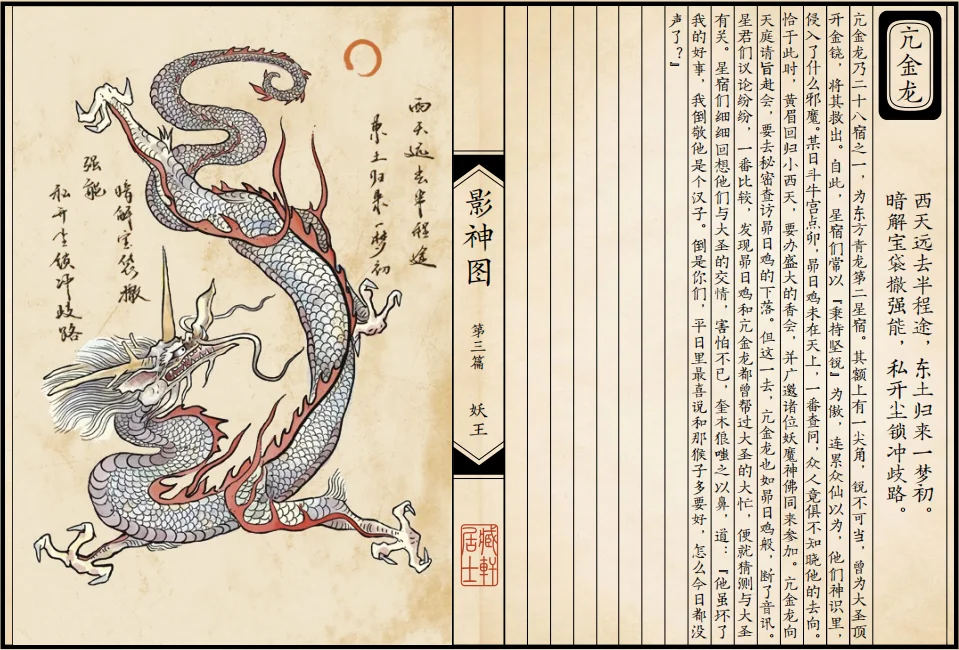 亢金龙
西天远去半程途，东土归来一梦初。
暗解宝袋撤强能，私开尘锁冲歧路。
亢金龙乃二十八宿之一，为东方青龙第二星宿。其额上有一尖角，锐不可当，曾为大圣顶
开金铙，将其救出。自此，星宿们常以『秉持坚锐』为傲，连累众仙以为，他们神识里，
侵入了什么邪魔。某日斗牛宫点卯，昴日鸡未在天上，一番查问，众人竟俱不知晓他的去向。
恰于此时，黄眉回归小西天，要办盛大的香会，并广邀诸位妖魔神佛同来参加。亢金龙向
天庭请旨赴会，要去秘密查访昴日鸡的下落。但这一去，亢金龙也如昴日鸡般，断了音讯。
星君们议论纷纷，一番比较，发现昴日鸡和亢金龙都曾帮过大圣的大忙，便就猜测与大圣
有关。星宿们细细回想他们与大圣的交情，害怕不已，奎木狼嗤之以鼻，道：『他虽坏了
我的好事，我倒敬他是个汉子。倒是你们，平日里最喜说和那猴子多要好，怎么今日都没
声了？』
影神图
第三篇
妖王
藏軒
居士
西天远去半程途
东土归来一梦初
暗解宝袋撤
强能
私开尘锁冲歧路